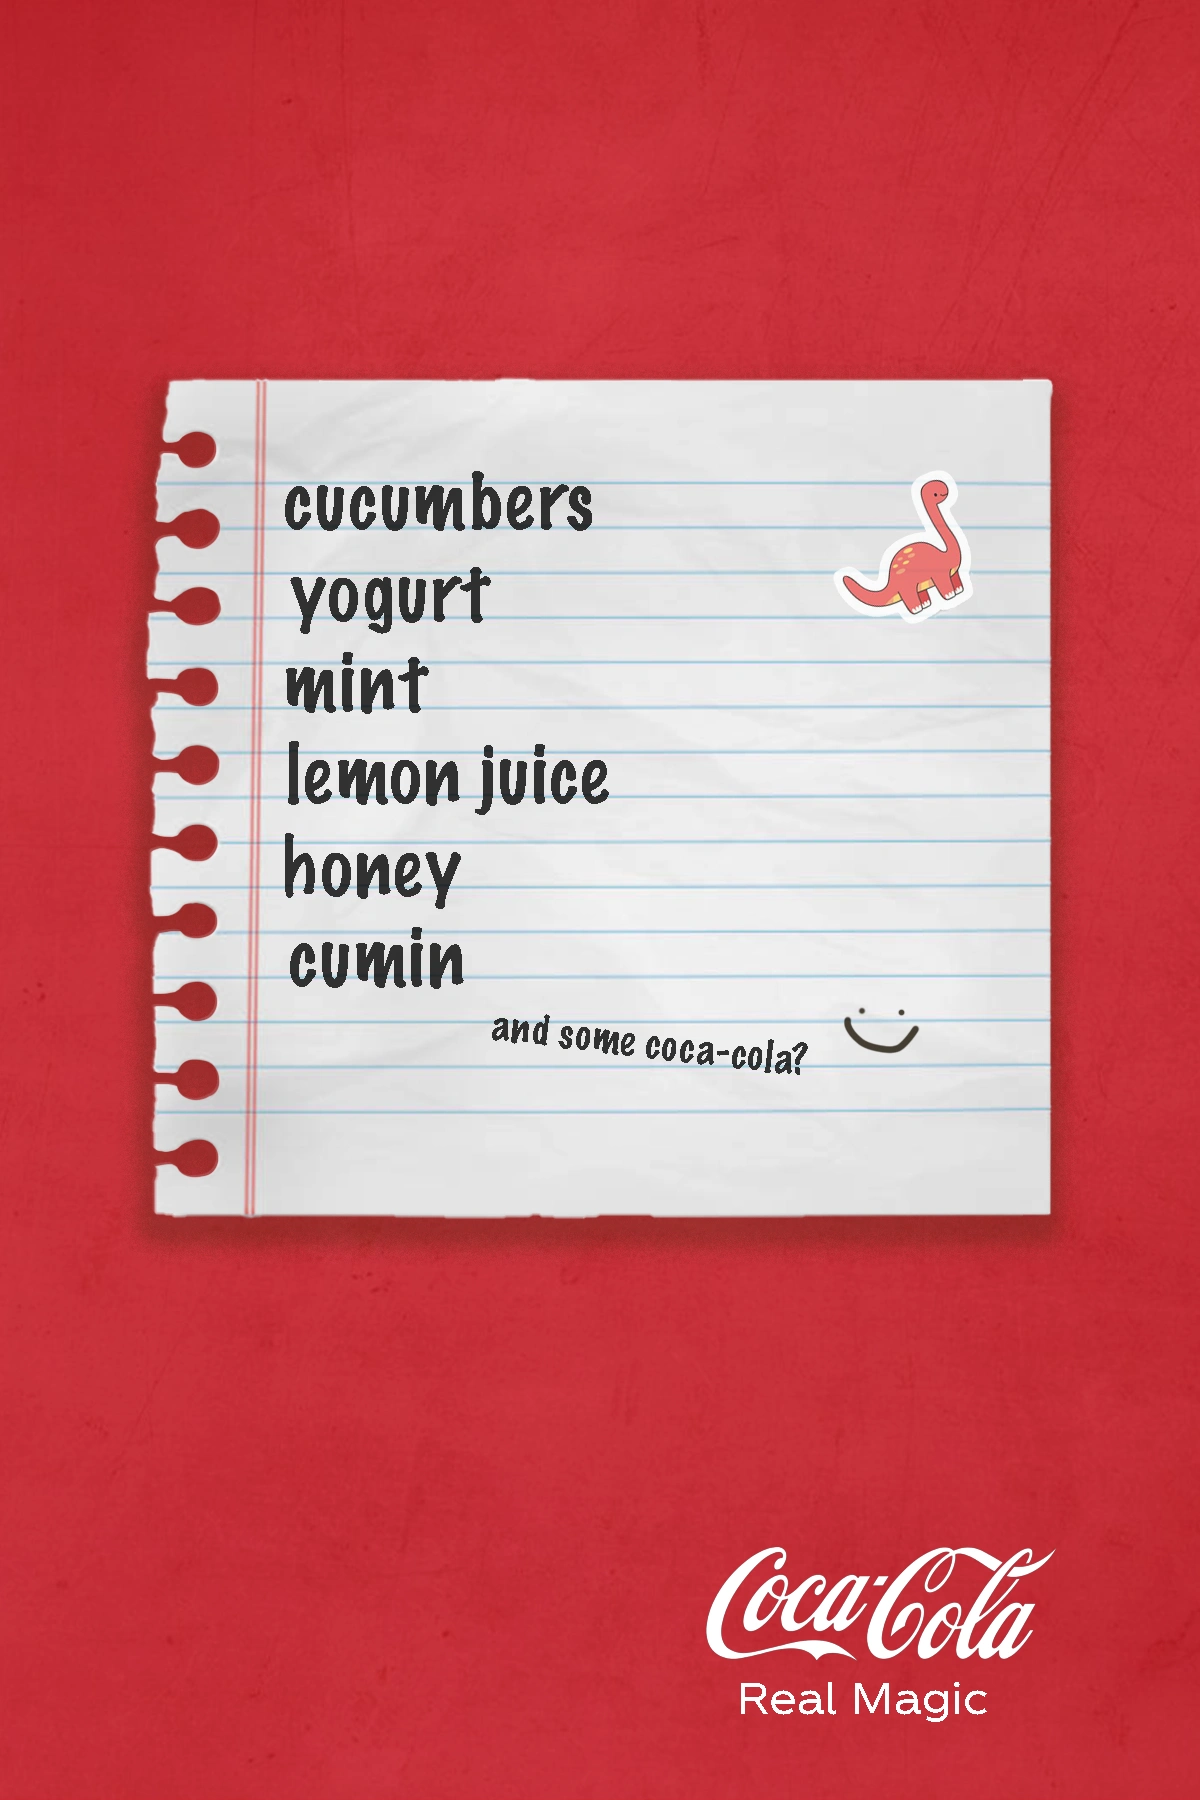 cucumbers
yogurt
mint
lemon juice
honey
cumin
and some coca-cola?
Coca-Cola
Real Magic